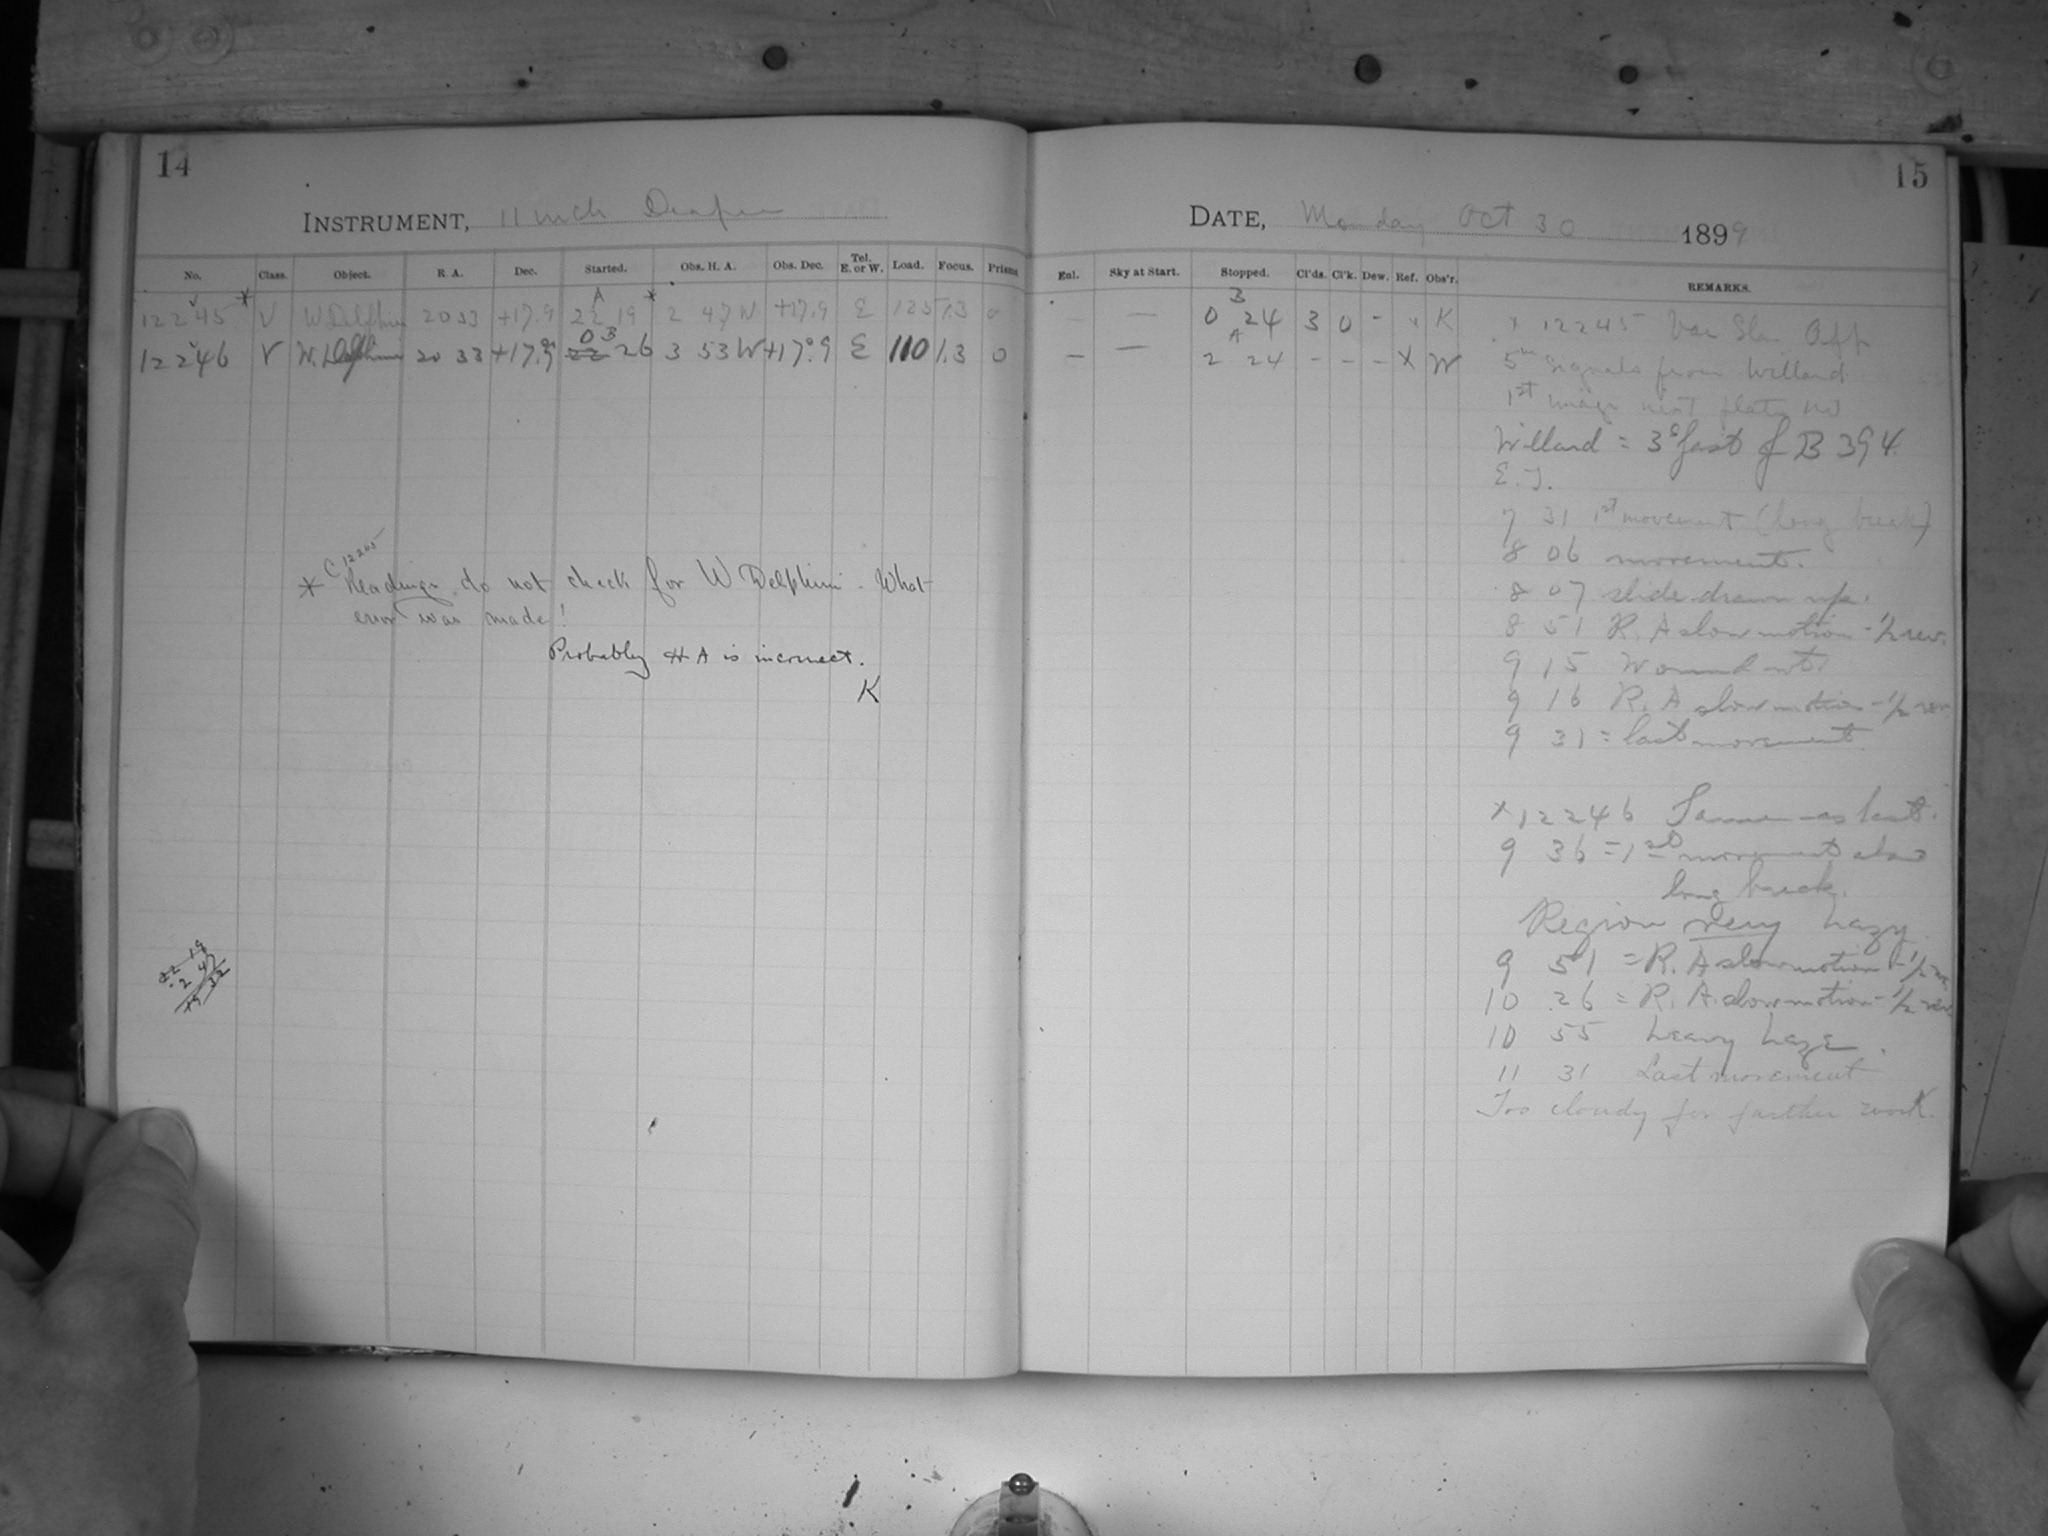 14
INSTRUMENT, 11 inch Draper
No. Class. Object. R. A. Dec. Started. Obs. H. A. Obs. Dec. Tel. E. or W. Load. Focus. Prisms
12245 * V W Delphini 20 33 +17.9 A 22 19 * 2 47 W +17.9 E 125 1.3 0
12246 V W. Delphini 20 33 +17.9 0 B 22 26 3 53 W +17.9 E 110 1.3 0
* C 12245 Readings do not check for W Delphini. What
error was made!
Probably H A is incorrect.
K
22 19
2 47
19 32
15
DATE, Monday Oct 30 1899
Enl. Sky at Start. Stopped. Cl'ds. Cl'k. Dew. Ref. Obs'r. REMARKS.
— — B 0 24 3 0 - x K
— — A 2 24 - - - x W
x 12245 Var Sta App
5m signals from Willard
1st image next plate no
Willard = 3s fast of B 394.
E. T.
7 31 1st movement (long break)
8 06 movement.
8 07 slide drawn up.
8 51 R. A slow motion - 1/2 rev.
9 15 Wound
9 16 R. A slow motion - 1/2 rev
9 31 = last movement
x 12246 Same as last.
9 36 = 1st movement also
long break.
Region very hazy
9 51 = R. A slow motion - 1/2 rev.
10 26 = R. A. slow motion - 1/2 rev
10 55 heavy haze.
11 31 Last movement
Too cloudy for farther work.